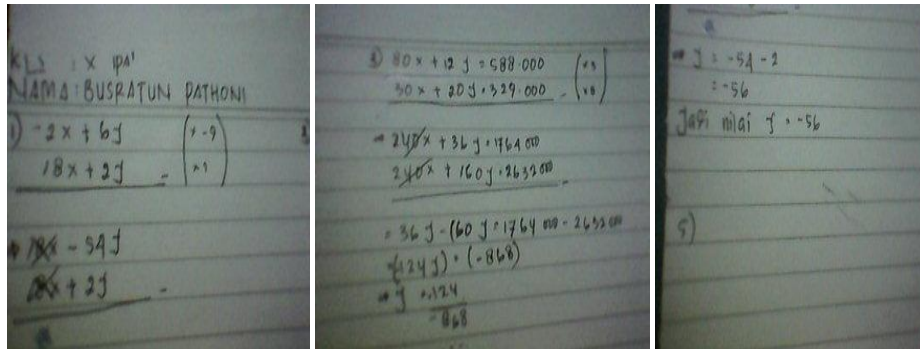 KLS : X IPA'
NAMA : BUSRATUN PATHONI
1) -2x + 6y (x -9)
18x + 2y - (x 1)
18x - 54y
18x + 2y -
3) 80x + 12y = 588.000 (x 3)
30x + 20y = 329.000 - (x 8)
→ 240x + 36y = 1764 000
240x + 160y = 2632 000 -
= 36y - 160y = 1764 000 - 2632 000
(-124y) = (-868)
→ y = 124
-868
→ y = -54 - 2
= -56
Jadi nilai y = -56
5)